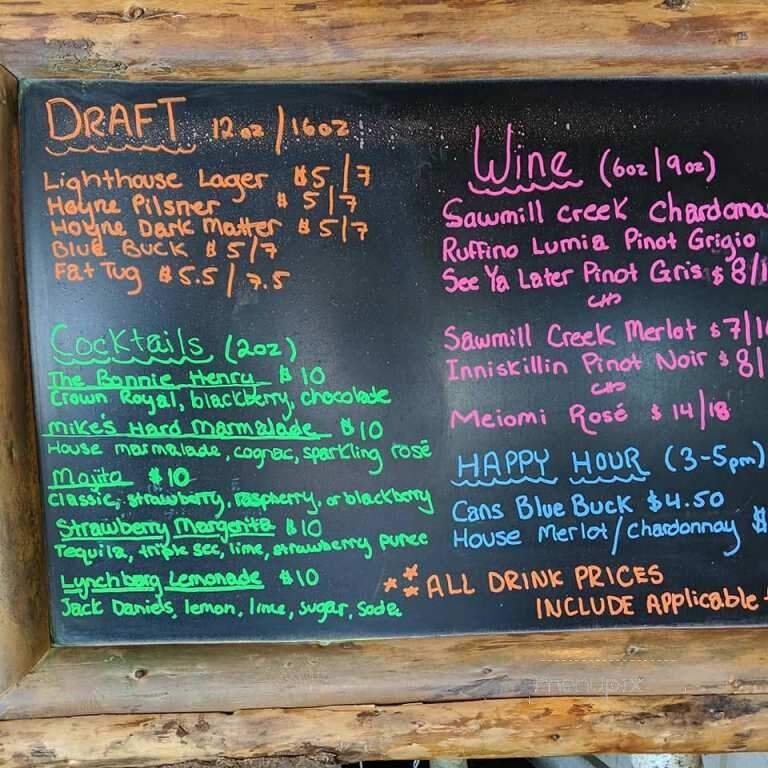 DRAFT 12oz/16oz
Lighthouse Lager $5/7
Hoyne Pilsner $5/7
Hoyne Dark Matter $5/7
Blue Buck $5/7
Fat Tug $5.5/7.5
Cocktails (2oz)
The Bonnie Henry $10
Crown Royal, blackberry, chocolate
Mike's Hard Marmalade $10
House marmalade, cognac, sparkling rosé
Mojito $10
Classic, strawberry, raspberry, or blackberry
Strawberry Margerita $10
Tequila, triple sec, lime, strawberry puree
Lynchbarg Lemonade $10
Jack Daniels, lemon, lime, sugar, soda
Wine (6oz/9oz)
Sawmill creek
Ruffino Lumia Pinot Grigio
See Ya Later Pinot Gris $8/
Sawmill Creek Merlot $7/
Inniskillin Pinot Noir $8/
Meiomi Rosé $14/18
HAPPY HOUR (3-5pm)
Cans Blue Buck $4.50
House Merlot/Chardonnay $
*** ALL DRINK PRICES
INCLUDE Applicable
menupix